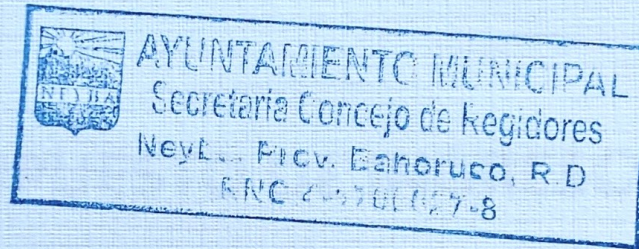 NEIBA
AYUNTAMIENTO MUNICIPAL
Secretaria Concejo de Regidores
Prov. Bahoruco, R.D
RNC